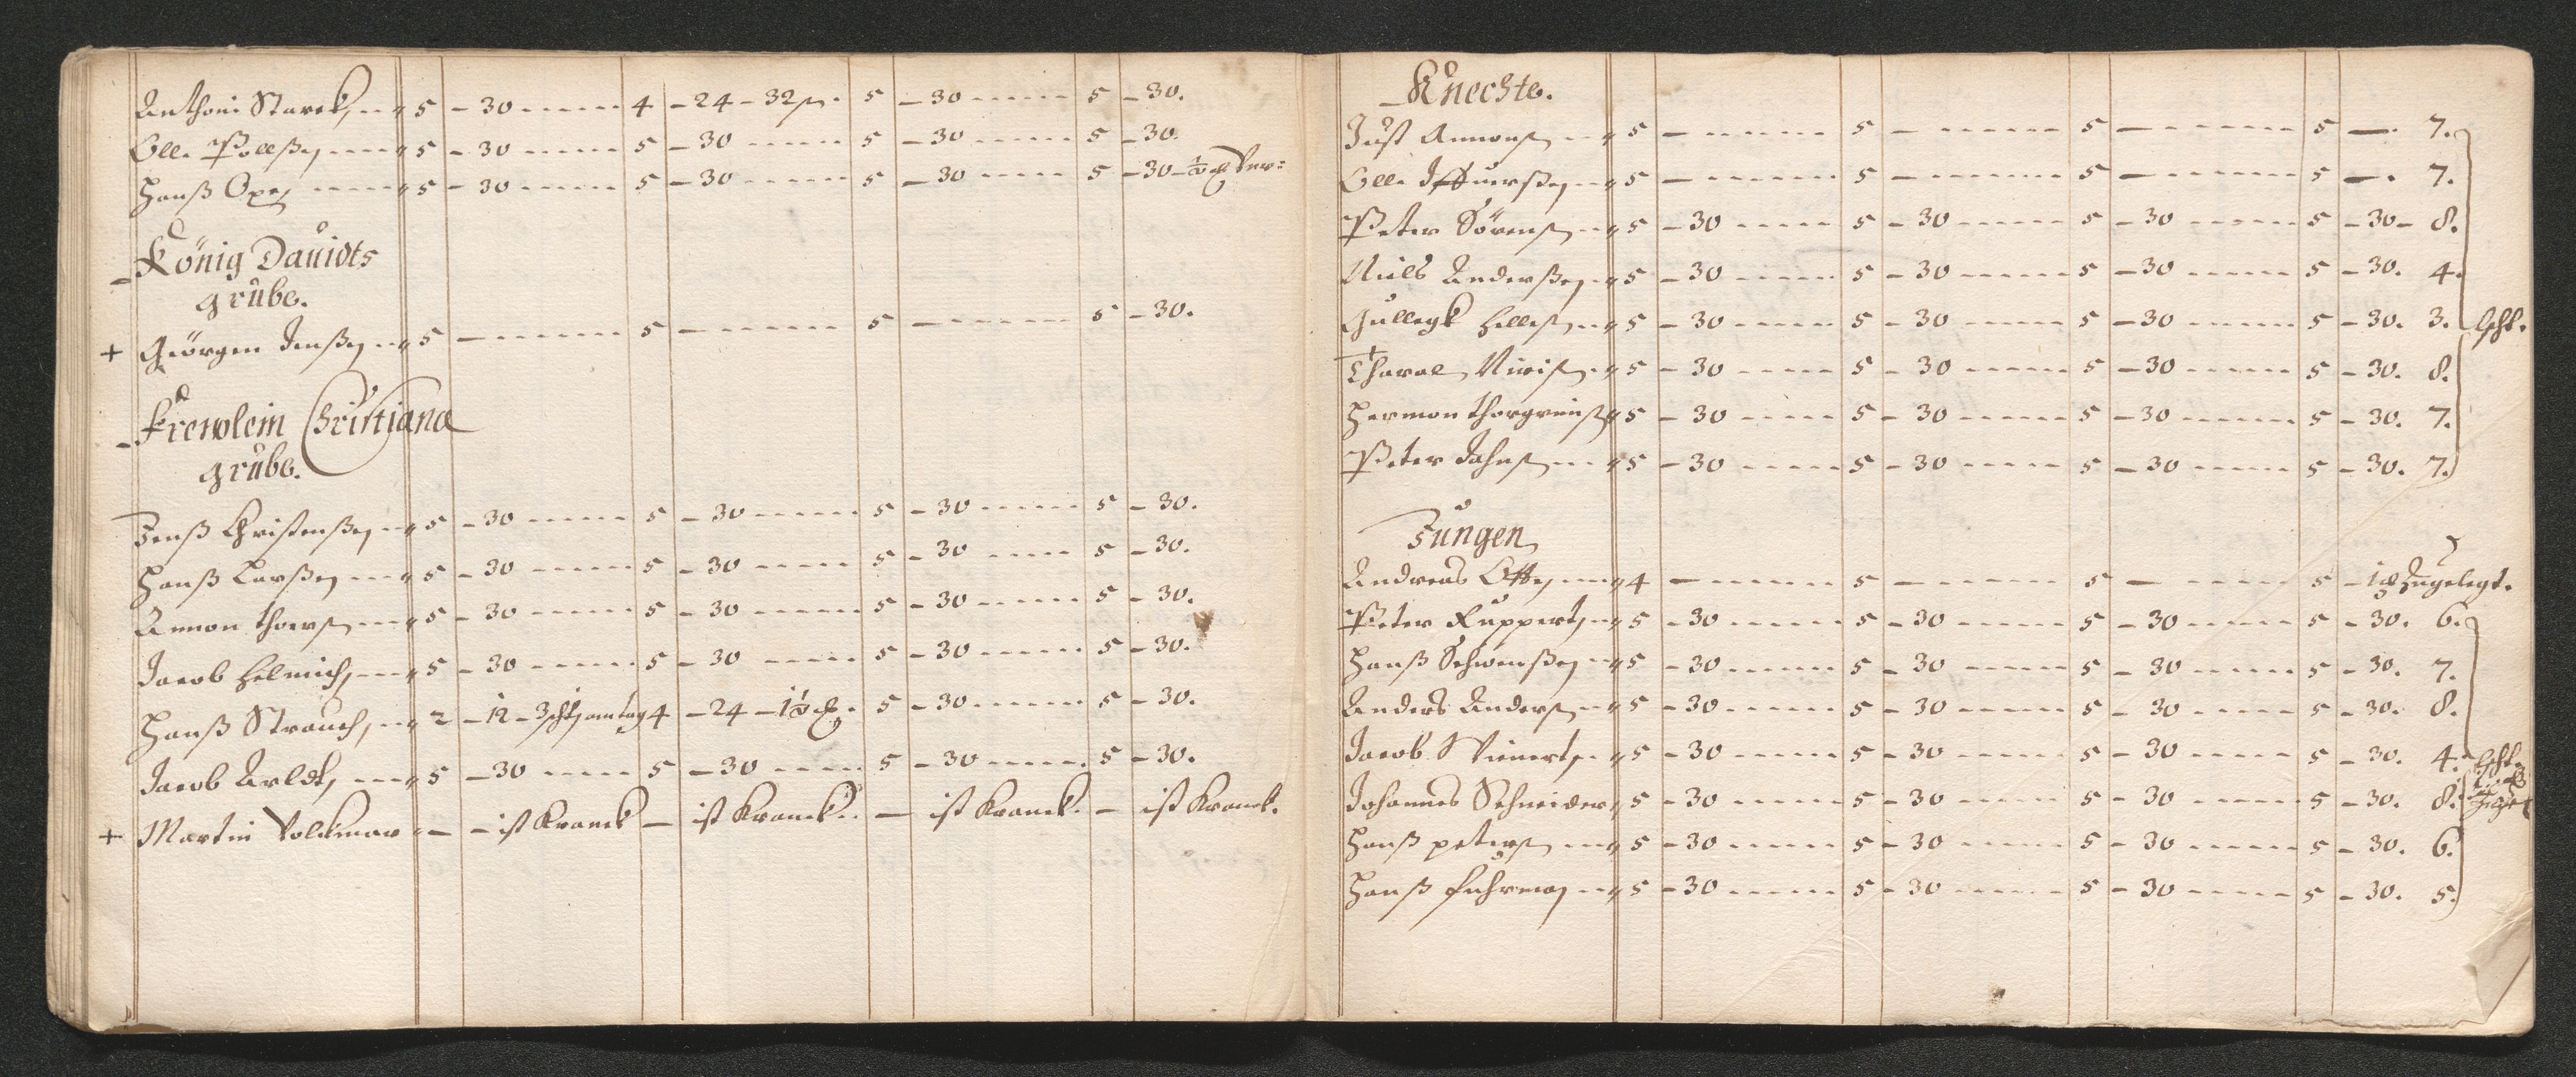 Anthoni Starck, 5 - 30 4 - 24 - 32 ß. 5 - 30 5 - 30.
Olle Poellßen 5 - 30 5 - 30 5 - 30 5 - 30.
Hanß Oxen 5 - 30 5 - 30 5 - 30 5 - 30 -
König Dauidts
grube.
+ Geörgen Jenßen 5 - 5 - 5 - 5 - 30.
Frewlein Christiana
grube.
Jenß Christenßen 5 - 30 5 - 30 5 - 30 5 - 30.
Hanß Larßen 5 - 30 5 - 30 5 - 30 5 - 30.
Amon thorß 5 - 30 5 - 30 5 - 30 5 - 30.
Jacob Helmich, 5 - 30 5 - 30 5 - 30 5 - 30.
Hanß Strauch, 2 - 12 - 3 am tag 4 - 24 - 5 - 30 5 - 30.
Jacob Arldt, 5 - 30 5 - 30 5 - 30 5 - 30.
+ Martin Volckmar - - ist Kranck - ist Kranck. - ist Kranck. - ist Kranck.
Knechte.
Just Amonß 5 - 5 - 5 - 5 -. 7.
Olle 5 - 5 - 5 - 5 -. 7.
Peter Sörenß 5 - 30 5 - 30 5 - 30 5 - 30 - 8.
Niels Anderßen 5 - 30 5 - 30 5 - 30 5 - 30. 4.
Gullegk Helleß 5 - 30 5 - 30 5 - 30 5 - 30. 3. scht.
Tharal 5 - 30 5 - 30 5 - 30 5 - 30. 8.
Hermon thorgrimß 5 - 30 5 - 30 5 - 30 5 - 30. 7.
Peter Jahnß 5 - 30 5 - 30 5 - 30 5 - 30. 7.
Jungen
Andreas Otte, 4 - 5 - 5 - 5 - Zugelegt.
Peter Ruppert, 5 - 30 5 - 30 5 - 30 5 - 30. 6.
Hanß Schwenßen 5 - 30 5 - 30 5 - 30 5 - 30. 7.
Anders Anderß 5 - 30 5 - 30 5 - 30 5 - 30. 8.
Jacob Steinert, 5 - 30 5 - 30 5 - 30 5 - 30. 4. scht.
Johannes Schneider, 5 - 30 5 - 30 5 - 30 5 - 30. 8.
Hanß peterß 5 - 30 5 - 30 5 - 30 5 - 30. 6.
Hanß fuhrman 5 - 30 5 - 30 5 - 30 5 - 30. 5.